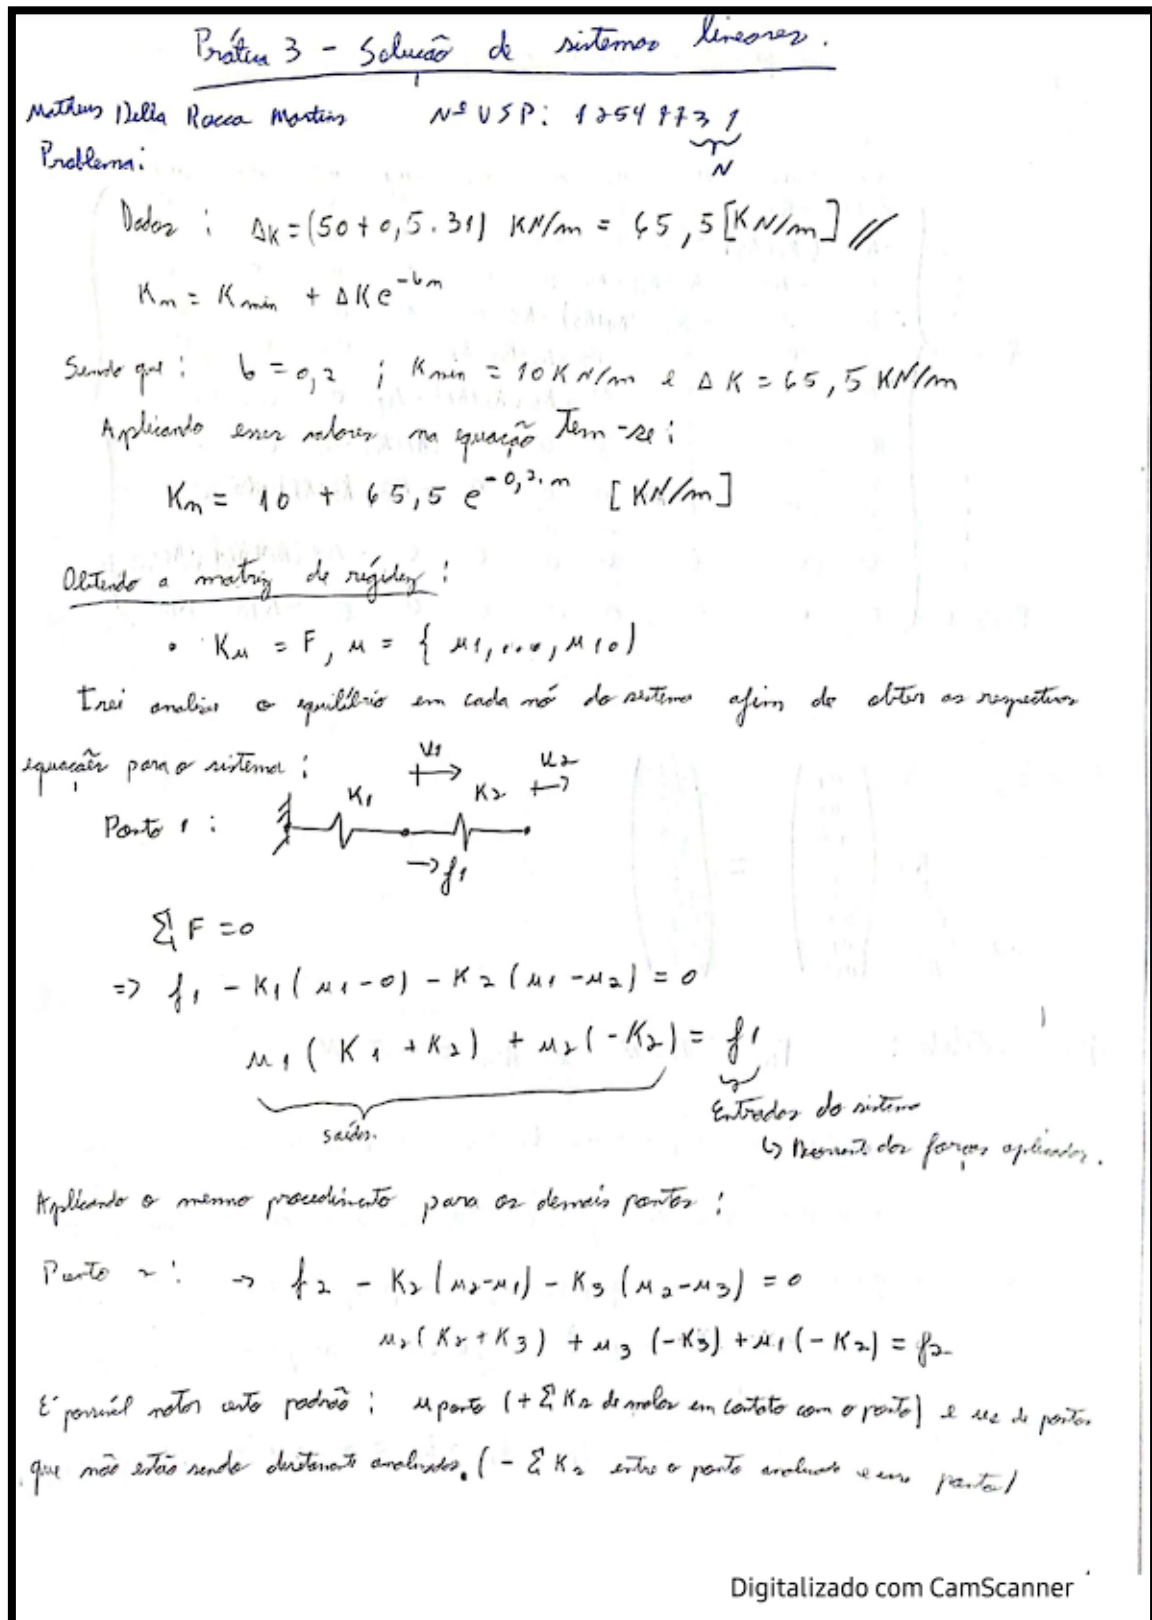 Prática 3 - Solução de sistemas lineares.
Matheus Della Rocca Martins Nº USP: 12549731
N
Problema:
Dados : ΔK = (50 + 0,5 . 31) KN/m = 65,5 [KN/m] //
Kn = Kmin + ΔK e^-bn
Sendo que : b = 0,2 ; Kmin = 10 KN/m e ΔK = 65,5 KN/m
Aplicando esses valores na equação tem-se :
Kn = 10 + 65,5 e^-0,2.n [KN/m]
Obtendo a matriz de rigidez :
• Ku = F, u = { u1, ..., u10 )
Irei analisar o equilíbrio em cada nó do sistema afim de obter as respectivas
equações para o sistema :
U1 U2
K1 K2
Ponto 1 :
→ f1
Σ F = 0
=> f1 - K1 ( u1 - 0) - K2 ( u1 - u2 ) = 0
u1 ( K1 + K2 ) + u2 ( - K2 ) = f1
saídas.
Entradas do sistema
↳ das forças aplicadas.
Aplicando o mesmo procedimento para os demais pontos :
Ponto 2 : → f2 - K2 (u2-u1) - K3 (u2-u3) = 0
u2 ( K2 + K3 ) + u3 (-K3) + u1 (- K2) = f2
É possível notar certo padrão ; u ponto (+ Σ Ks de molas em contato com o ponto) e us de pontos
que não estão sendo diretamente analisados. ( - Σ Ks entre o ponto analisado e esse ponto)
Digitalizado com CamScanner